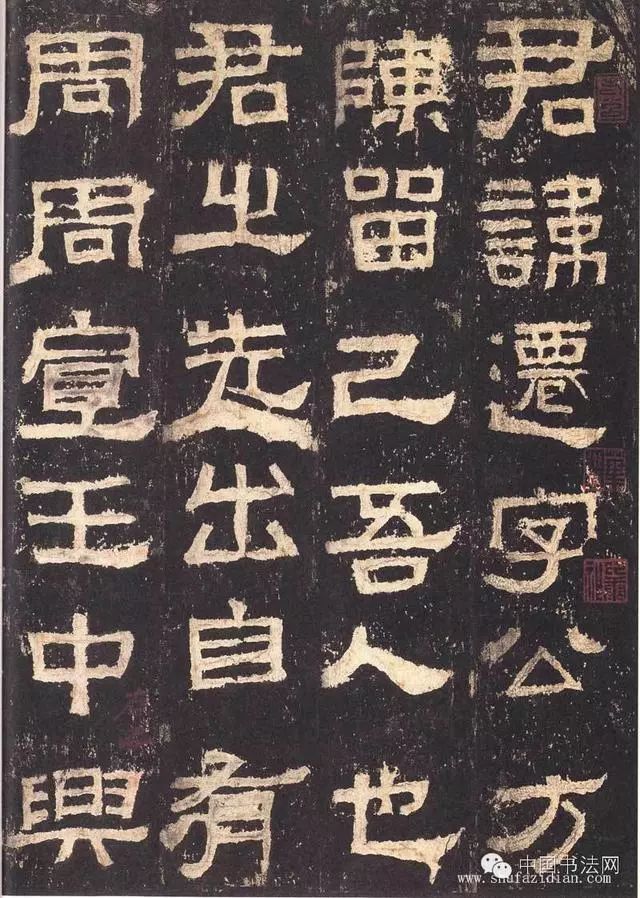 君諱遷字公方
陳留己吾人也
君之先出自有
周周宣王中興
中国书法网
www.shufazidian.com